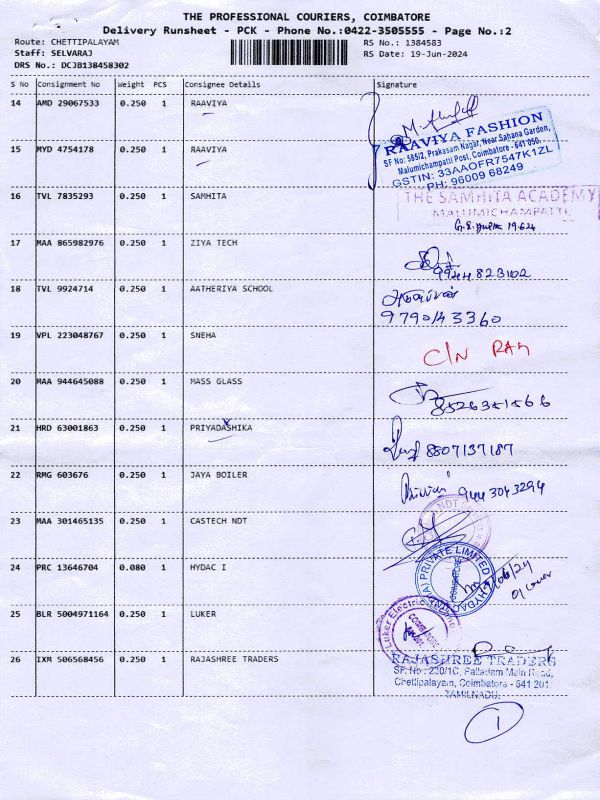 THE PROFESSIONAL COURIERS, COIMBATORE
Delivery Runsheet - PCK - Phone No.:0422-3505555 - Page No.:2
Route: CHETTIPALAYAM
RS No.: 1384583
Staff: SELVARAJ
RS Date: 19-Jun-2024
DRS No.: DCJB138458302
S No Consignment No Weight PCS Consignee Details Signature
14 AMD 29067533 0.250 1 RAAVIYA
RAAVIYA FASHION
SF No: 585/2, Prakasam Nagar, Near Sahana Garden,
Malumichampatti Post, Coimbatore - 641 050.
GSTIN: 33AAOFR7547K1ZL
PH: 96009 68249
15 MYD 4754178 0.250 1 RAAVIYA
16 TVL 7835293 0.250 1 SAMHITA
THE SAMHITA ACADEMY
MALUMICHAMPATTI,
19.6.24
17 MAA 865982976 0.250 1 ZIYA TECH
9944823102
18 TVL 9924714 0.250 1 AATHERIYA SCHOOL
9790143360
19 VPL 223048767 0.250 1 SNEHA
C/N RAM
20 MAA 944645088 0.250 1 MASS GLASS
8526351566
21 HRD 63001863 0.250 1 PRIYADASHIKA
8807137187
22 RMG 603676 0.250 1 JAYA BOILER
9443043294
23 MAA 301465135 0.250 1 CASTECH NDT
NDT
24 PRC 13646704 0.080 1 HYDAC I
HYDAC (A) PRIVATE LIMITED
COIMBATORE
01 cover
25 BLR 5004971164 0.250 1 LUKER
Luker Electric
26 IXM 506568456 0.250 1 RAJASHREE TRADERS
RAJASHREE TRADERS
SF. No : 230/1C, Palladam Main Road,
Chettipalayam, Coimbatore - 641 201.
TAMILNADU.
1